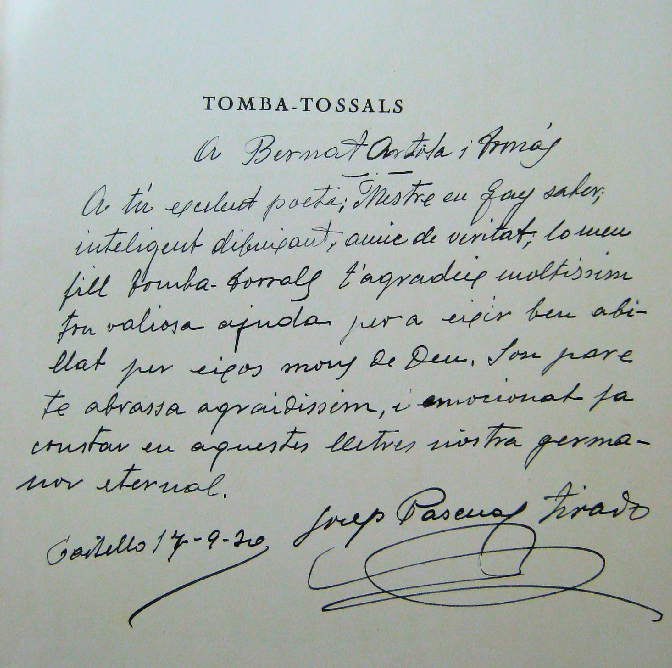 TOMBA-TOSSALS
A Bernat Artola i Tomás
A tú excelent poeta; Mestre en Gay saber;
inteligent dibuixant, amic de veritat, lo meu
fill Tomba-Tossals t'agraeix moltissim
tou valiosa ajuda per a eixir ben abi-
llat per eixos mons de Deu. Son pare
te abrassa agraidissim, i emocionat fa
constar en aquestes lletres nostra germa-
nor eternal.
Josep Pascual Tirado
Castelló 17-9-30